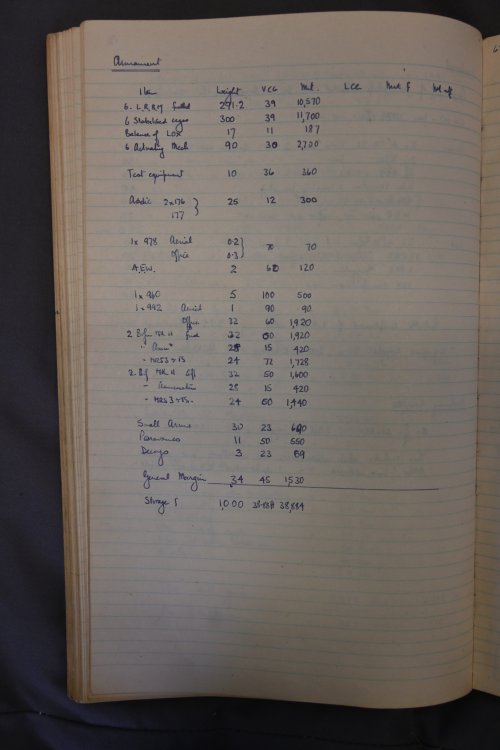 Armament
Item Weight VCG Mnt. LCG Mnt F Mnt aft
6. L.R.R.G.J fuelled 291.2 39 10,570
6 Stabilised cages 300 39 11,700
Balance of LOX 17 11 187
6 Activating Mech 90 30 2,700
Test equipment 10 36 360
Asdic 2x176 25 12 300
177
1x 978 Aerial 0.2 70 70
Office 0.3
A.E.W. 2 60 120
1x 960 5 100 500
1x 992 Aerial 1 90 90
Office 32 60 1,920
2 Bofors MK 11 fwd 32 60 1,920
" Amm" 28 15 420
- MRS3 & TS 24 72 1,728
2 Bof MK 11 aft 32 50 1,600
- Ammunition 28 15 420
- MRS3 & TS. 24 60 1,440
Small Arms 30 23 690
Paravanes 11 50 550
Decoys 3 23 69
General Margin 34 45 1,530
Storage 1,000 38.884 38,884